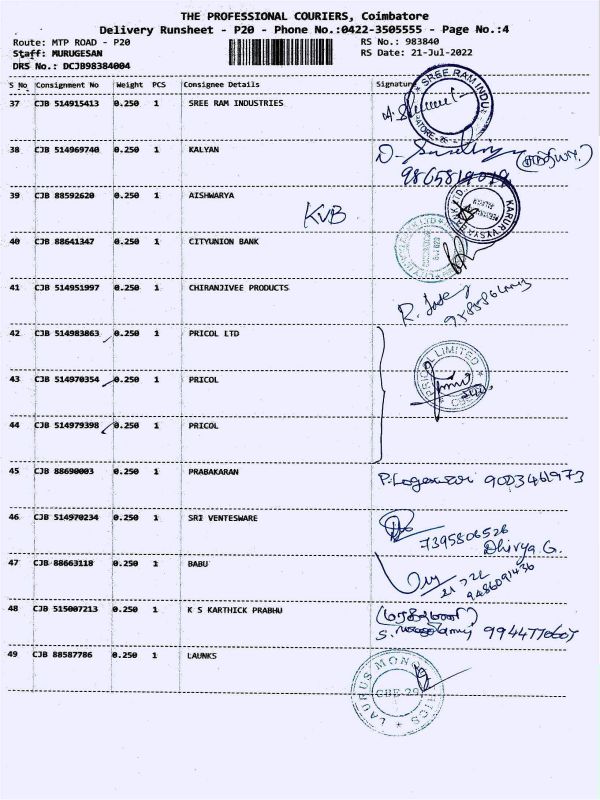 THE PROFESSIONAL COURIERS, Coimbatore
Delivery Runsheet - P20 - Phone No.:0422-3505555 - Page No.:4
Route: MTP ROAD - P20 RS No.: 983840
Staff: MURUGESAN RS Date: 21-Jul-2022
DRS No.: DCJB98384004
S No Consignment No Weight PCS Consignee Details Signature
37 CJB 514915413 0.250 1 SREE RAM INDUSTRIES
SREE RAM INDU
38 CJB 514969740 0.250 1 KALYAN
39 CJB 88592620 0.250 1 AISHWARYA
KVB
KARUR VYSYA BANK
40 CJB 88641347 0.250 1 CITYUNION BANK
41 CJB 514951997 0.250 1 CHIRANJIVEE PRODUCTS
42 CJB 514983863 0.250 1 PRICOL LTD
PRICOL LIMITED
43 CJB 514970354 0.250 1 PRICOL
44 CJB 514979398 0.250 1 PRICOL
45 CJB 88690003 0.250 1 PRABAKARAN
9003461973
46 CJB 514970234 0.250 1 SRI VENTESWARE
7395806526
Dhivya G.
47 CJB 88663118 0.250 1 BABU
9486091436
48 CJB 515007213 0.250 1 K S KARTHICK PRABHU
49 CJB 88587786 0.250 1 LAUNKS
LAURUS MONO
CBE-29